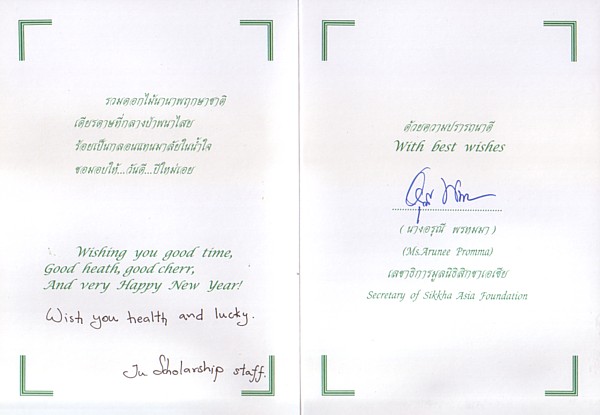 รวมดอกไม้นานาพฤกษาชาติ
เดียรดาษที่กลางป่าพนาไสย
ร้อยเป็นกลอนแทนมาลัยในน้ำใจ
ขอมอบให้...วันดี...ปีใหม่เอย
Wishing you good time,
Good heath, good cherr,
And very Happy New Year!
Wish you health and lucky.
Ju Scholarship staff.
ด้วยความปรารถนาดี
With best wishes
( นางอรุณี พรหมมา )
(Ms.Arunee Promma)
เลขาธิการมูลนิธิสิกขาเอเซีย
Secretary of Sikkha Asia Foundation